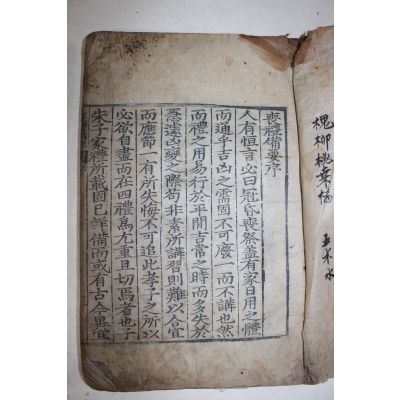 喪禮備要序
人有恒言必曰冠昏喪祭盖有家日用之體
而通乎吉凶之需固不可廢一而不講也然
而禮之用易行於平閒吉常之時而多失於
急遽凶變之際苟非素所講習則難以合宜
而應節一有所失悔不可追此孝子之所以
必欲自盡而在四禮爲尤重且切焉者也子
朱子家禮所載固已詳備而或有古今異宜
槐柳桃桑